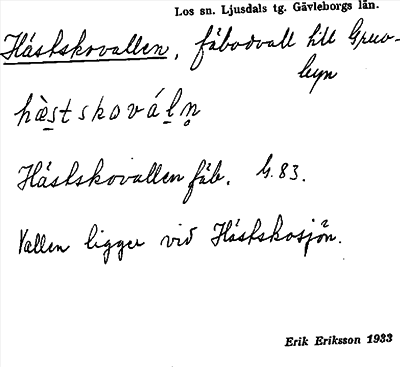 Los sn. Ljusdals tg. Gävleborgs län.
Hästskovallen, fäbodvall till Gruv-
byn
hæ̀stskováln̥
Hästskovallen fäb. G.83.
Vallen ligger vid Hästskosjön.
Erik Eriksson 1933